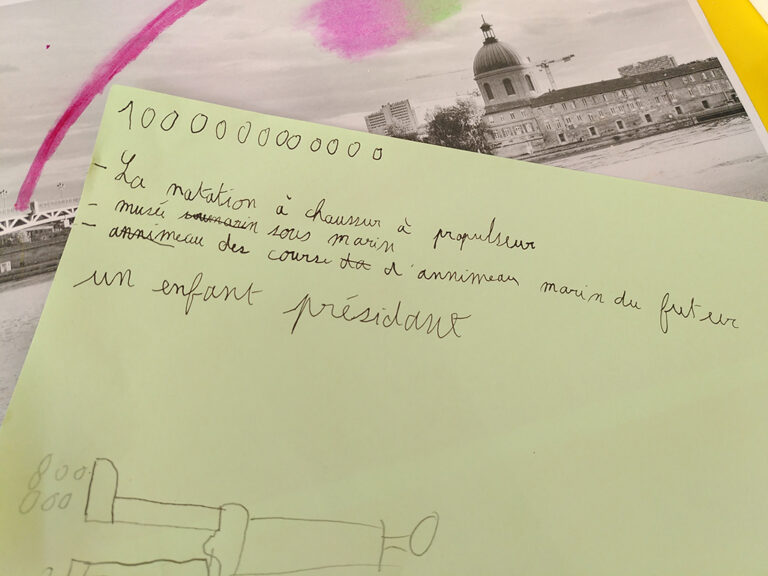 1000000000000
- La natation à chaussur à propulseur
- musée soumarin sous marin
- annimeau des course da d'annimeau marin du futeur
un enfant présidant
800
000